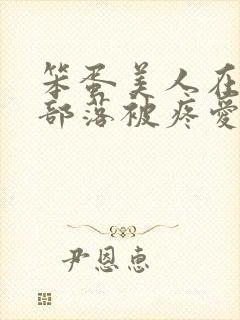 笨蛋美人在
部落被疼愛
尹恩惠